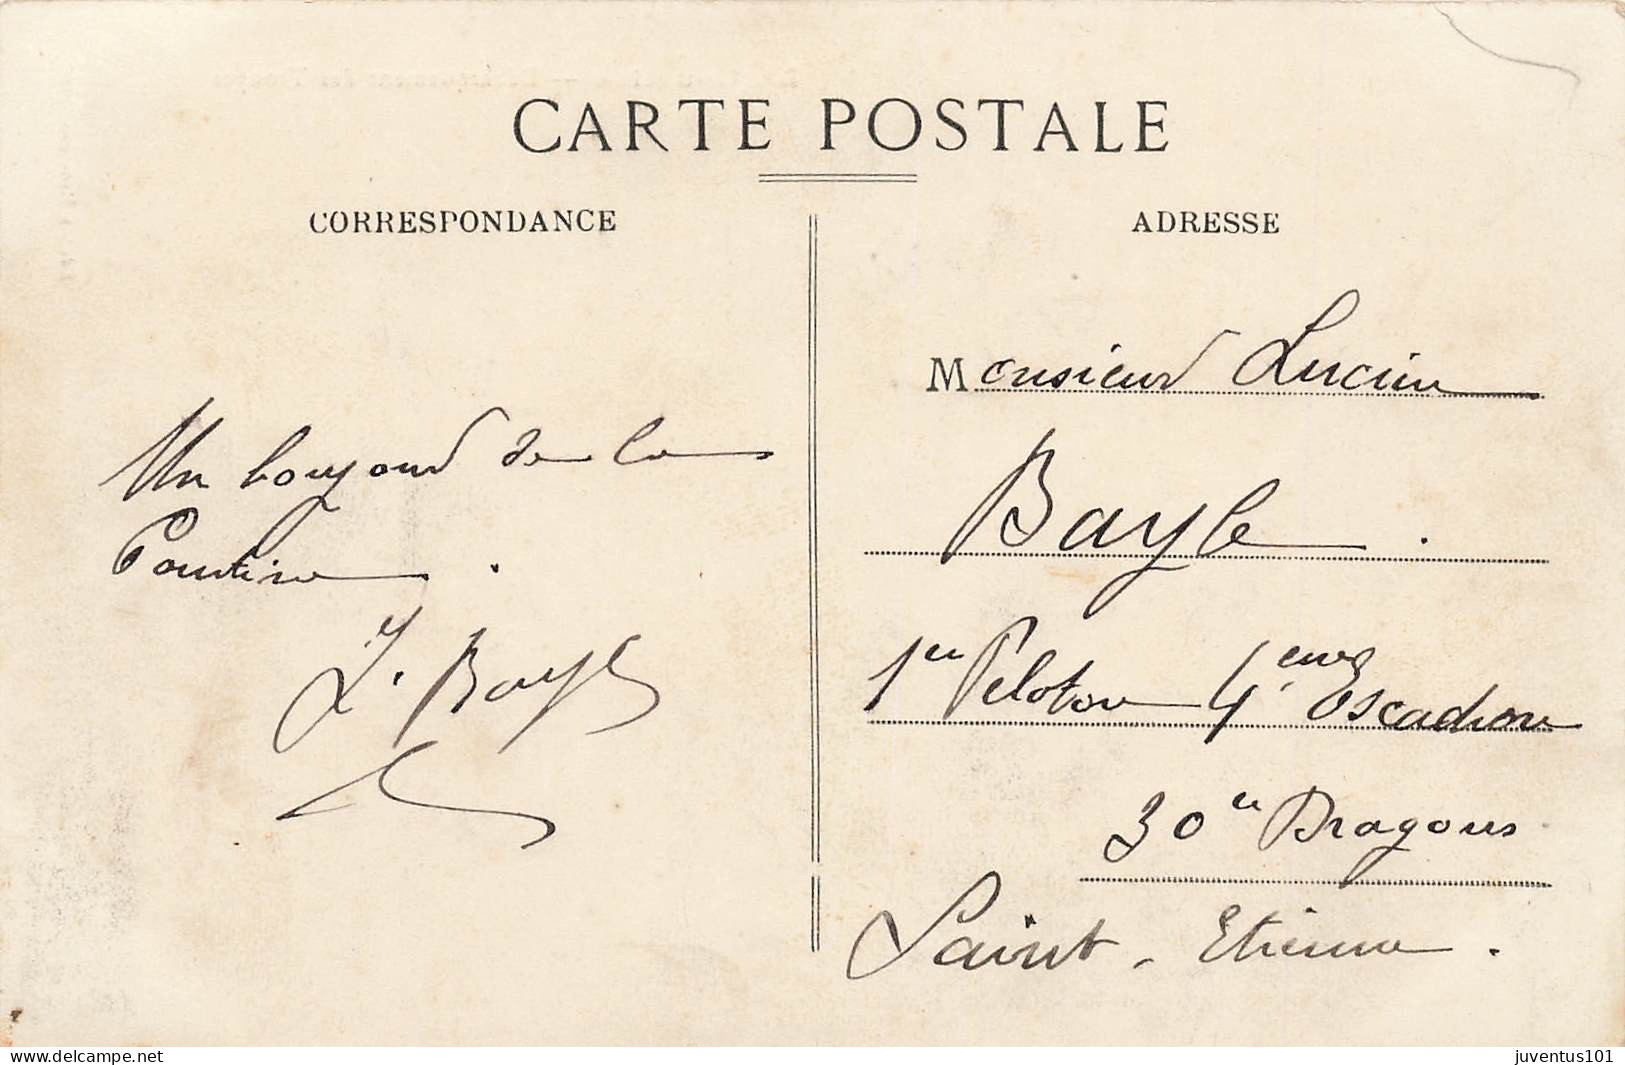 CARTE POSTALE
CORRESPONDANCE
Un bonjour de la
Pontine.
J. Bayle
ADRESSE
Monsieur Lucien
Bayle.
1er Peloton 4eme Escadron
30e Dragons
Saint-Etienne.
www.delcampe.net
juventus101